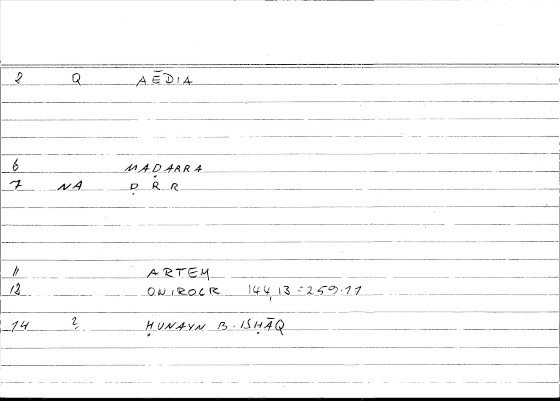 2 Q AĒDIA
6 MAḌARRA
7 NA Ḍ R R
11 ARTEM
12 ONIROCR 144,13 = 259.11
14 2 ḤUNAYN B. ISḤĀQ